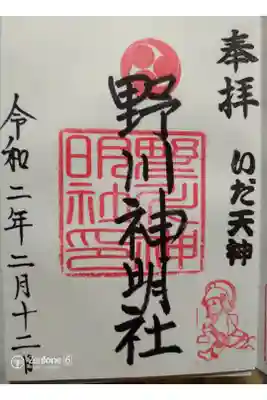 奉拝
いだ天神
野川神明社
野川神明社印
令和二年二月十二日